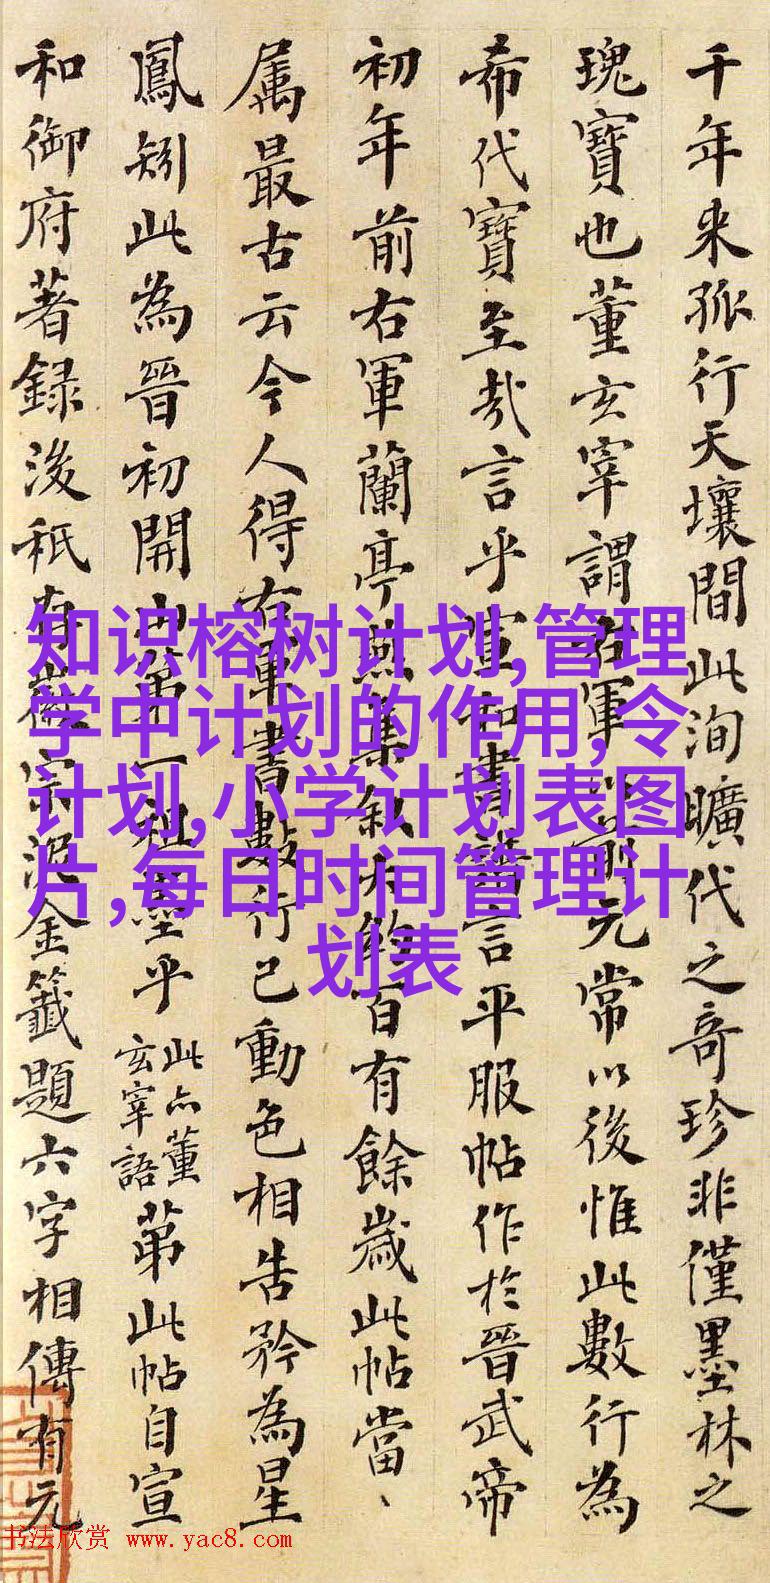 千年来孤行天壤間此洵曠代之奇珍非僅墨林之
瑰寶也董玄宰謂右軍以前元常以後惟此數行為
希代寶至哉言乎宣和書譜言平服帖作於晉武帝
初年前右軍蘭亭燕集敘大約百有餘歲此帖當、
属最古云今人得右軍書數行已動色相告矜為星
鳳矧此為晉初開山第一祖墨乎
此亦董
玄宰語
苐此帖自宣
和御府著録後秖有徽宗泥金籤題六字相傳有元
知识榕树计划,管理
学中计划的作用,令
计划,小学计划表图
片,每日时间管理计
划表
书法欣赏 www.yac8.com